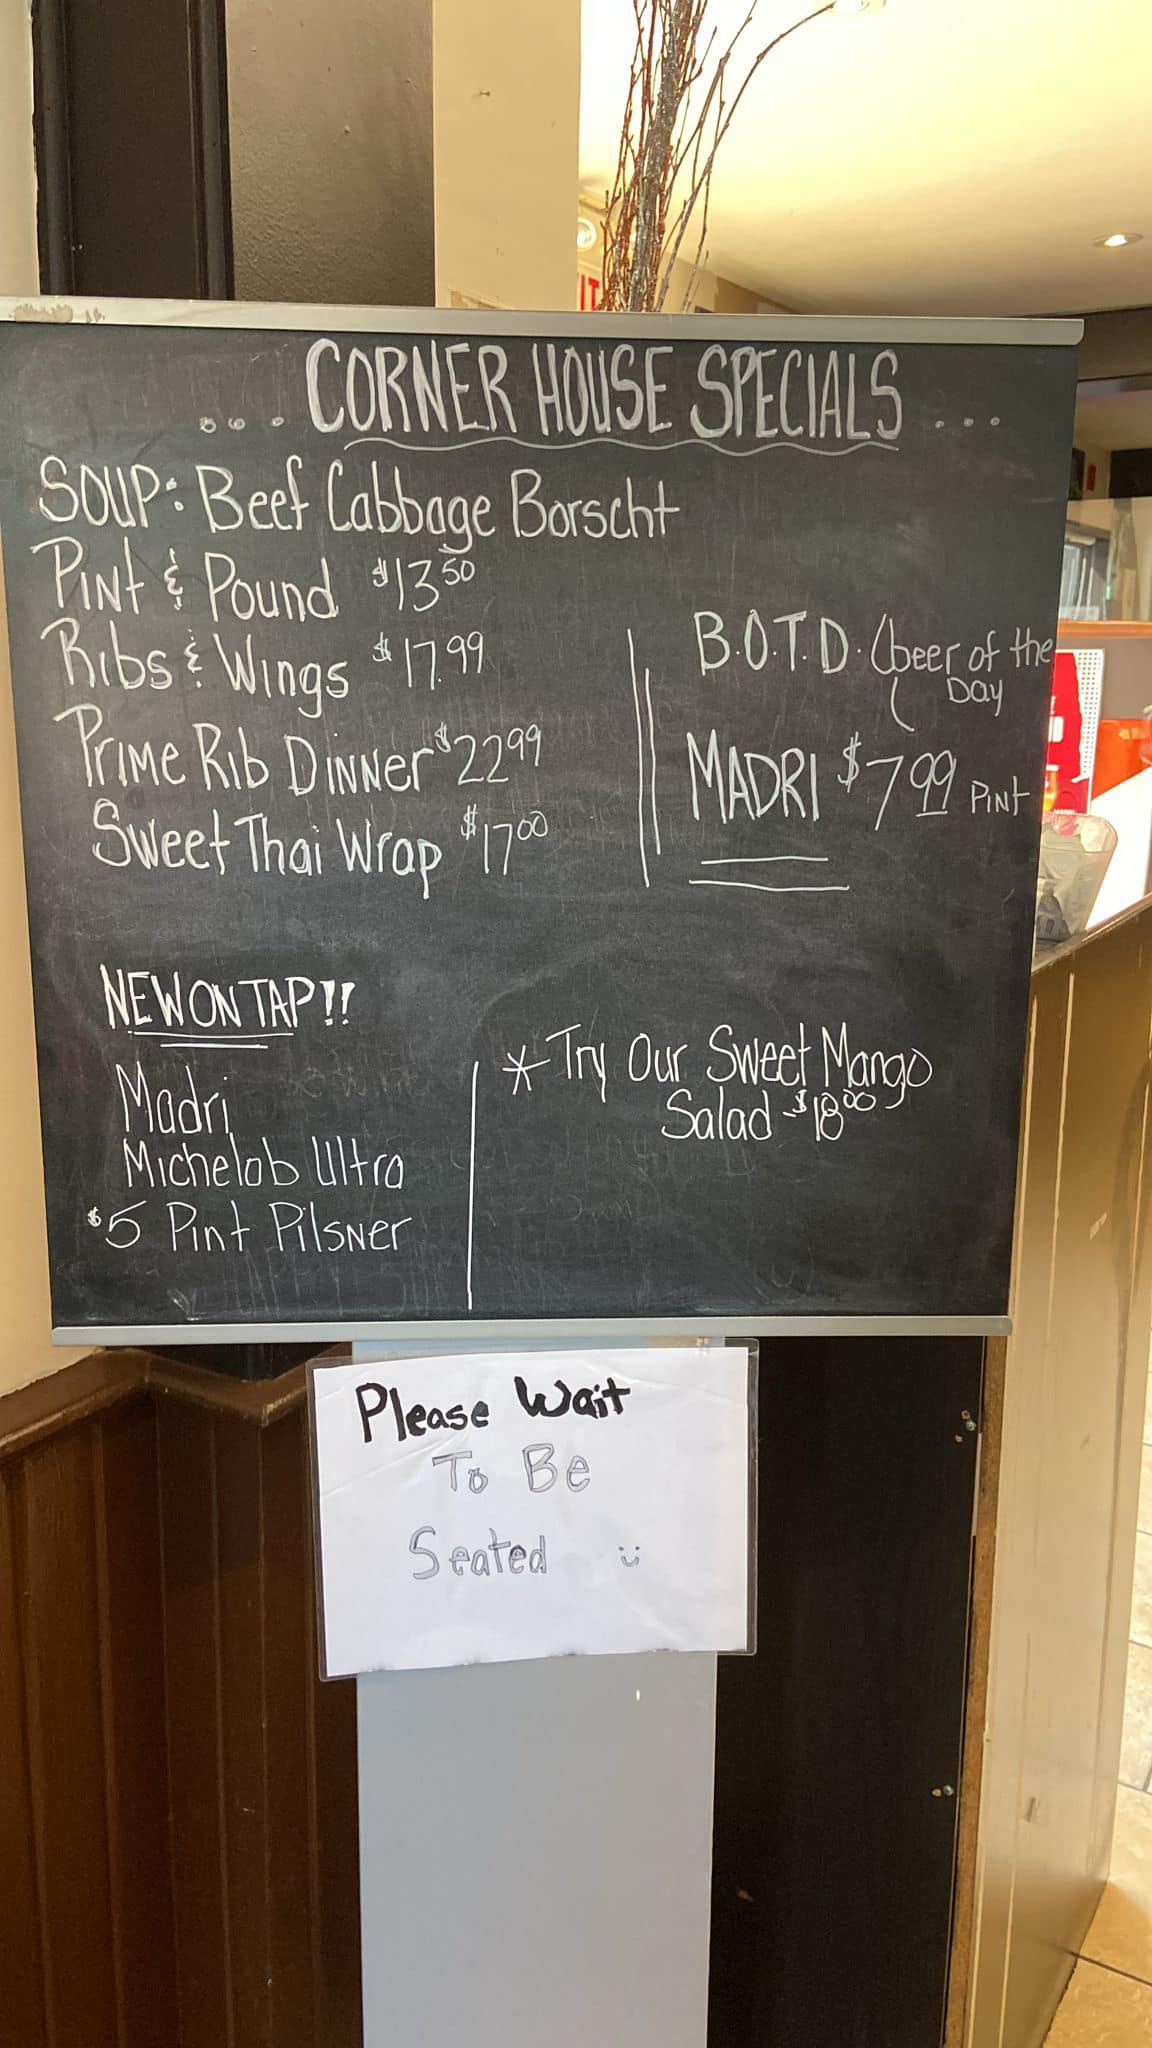 IT
... CORNER HOUSE SPECIALS ...
SOUP: Beef Cabbage Borscht
Pint & Pound $13.50
Ribs & Wings $17.99
Prime Rib Dinner $22.99
Sweet Thai Wrap $17.00
B.O.T.D. (beer of the
Day
MADRI $7.99 Pint
NEW ON TAP!!
Madri
Michelob Ultra
$5 Pint Pilsner
*Try Our Sweet Mango
Salad - $18.00
Please Wait
To Be
Seated :)